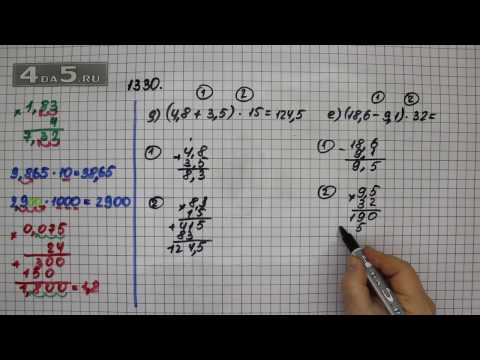 4DA5.RU
1330.
× 1,83
4
7,32
9,865·10=98,65
2,900·1000=2900
× 0,075
24
+ 300
150
1,800=1,8
① ②
д) (4,8+3,5)·15=124,5
① + 4,8
3,5
8,3
② × 8,3
15
+ 415
83
124,5
① ②
е) (18,6-9,1)·32=
① - 18,6
9,1
9,5
② × 9,5
32
190
5